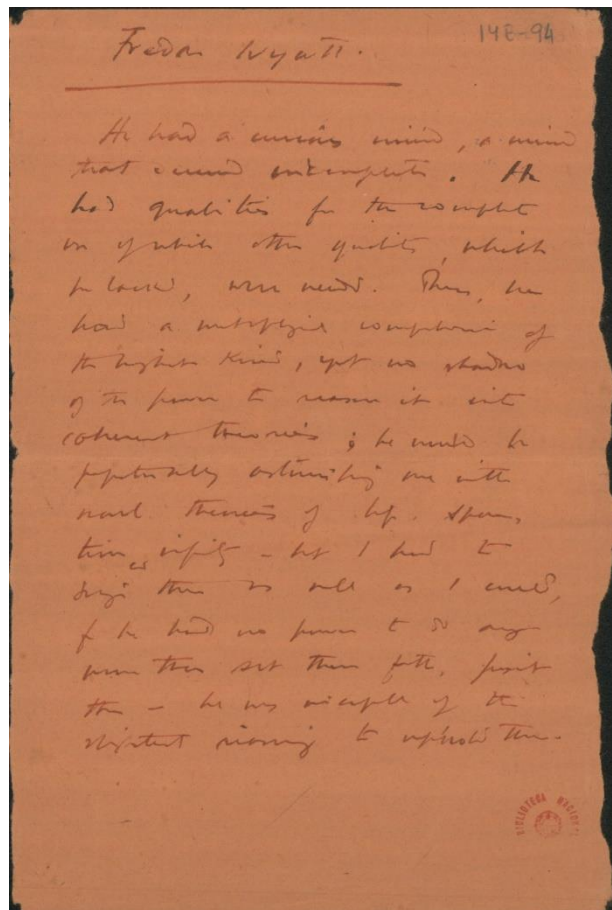 14E-94
Frederic Wyatt.
He had a curious mind, a mind
that seemed incomplete. He
had qualities for the complet
ion of which other qualities, which
he lacked, were needed. Thus, he
had a metaphysical comprehension of
the highest kind, yet no shadow
of the power to reason it into
coherent theories; he would be
perpetually astonishing me with
novel theories of life, space,
time, infinity - but I had to
seize them as well as I could,
for he had no power to do any
more than set them forth, posit
them - he was incapable of the
slightest reasoning to uphold them.
BIBLIOTECA NACIONAL